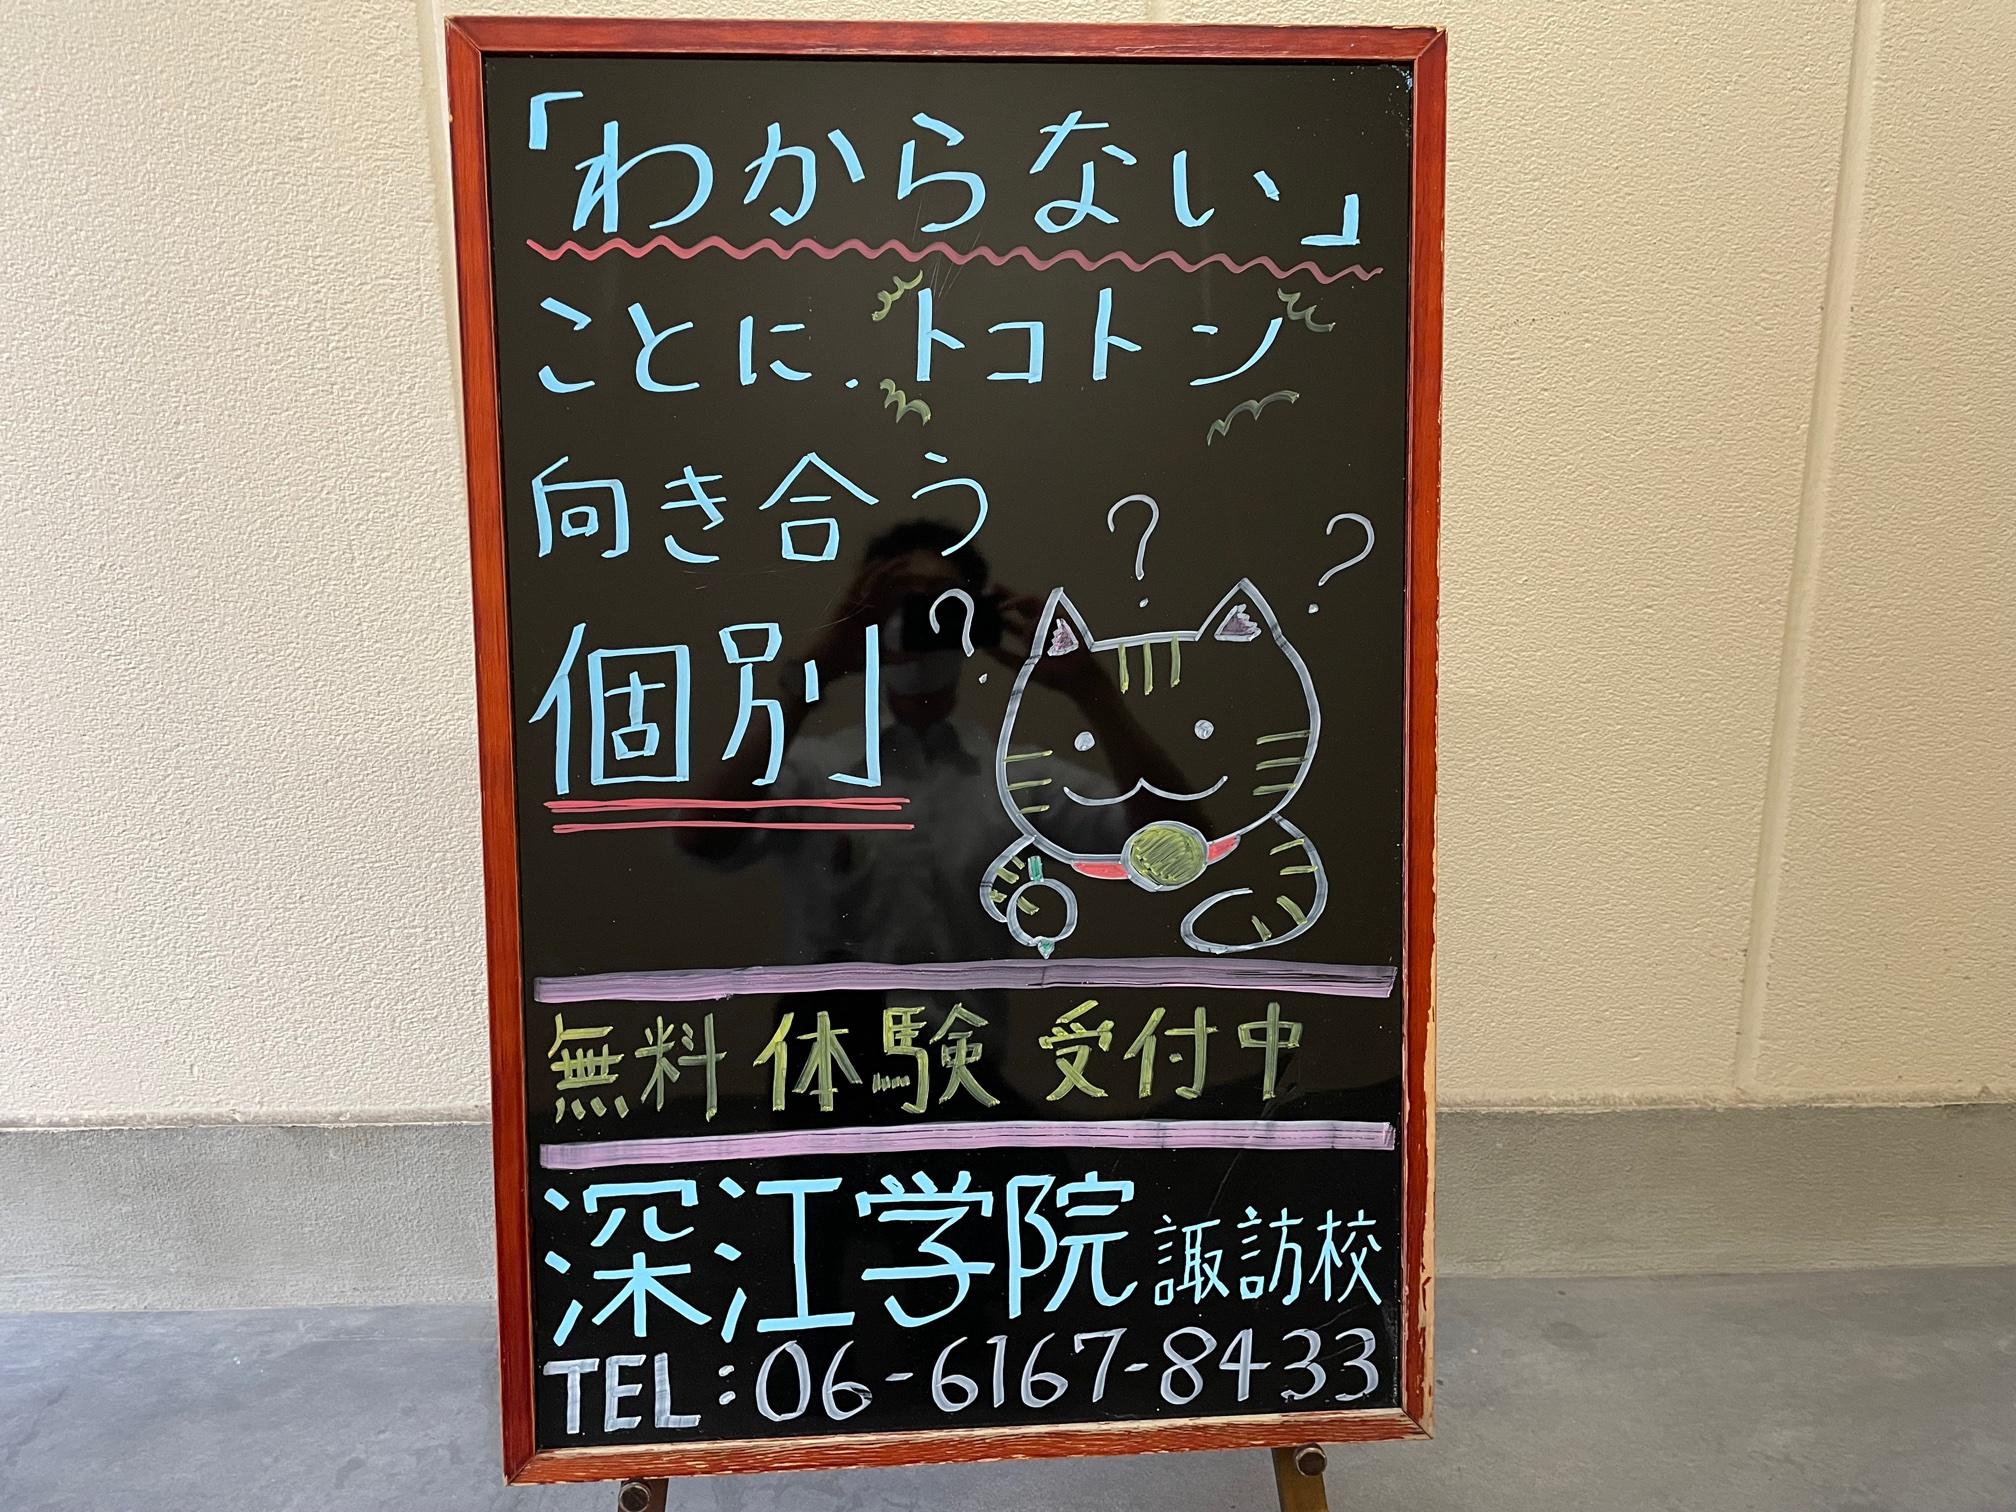 「わからない」
ことに、トコトン
向き合う
? ? ?
個別
無料 体験 受付中
深江学院 諏訪校
TEL:06-6167-8433